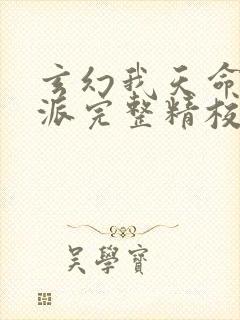 玄幻我天命
派完整精校
吴學寶